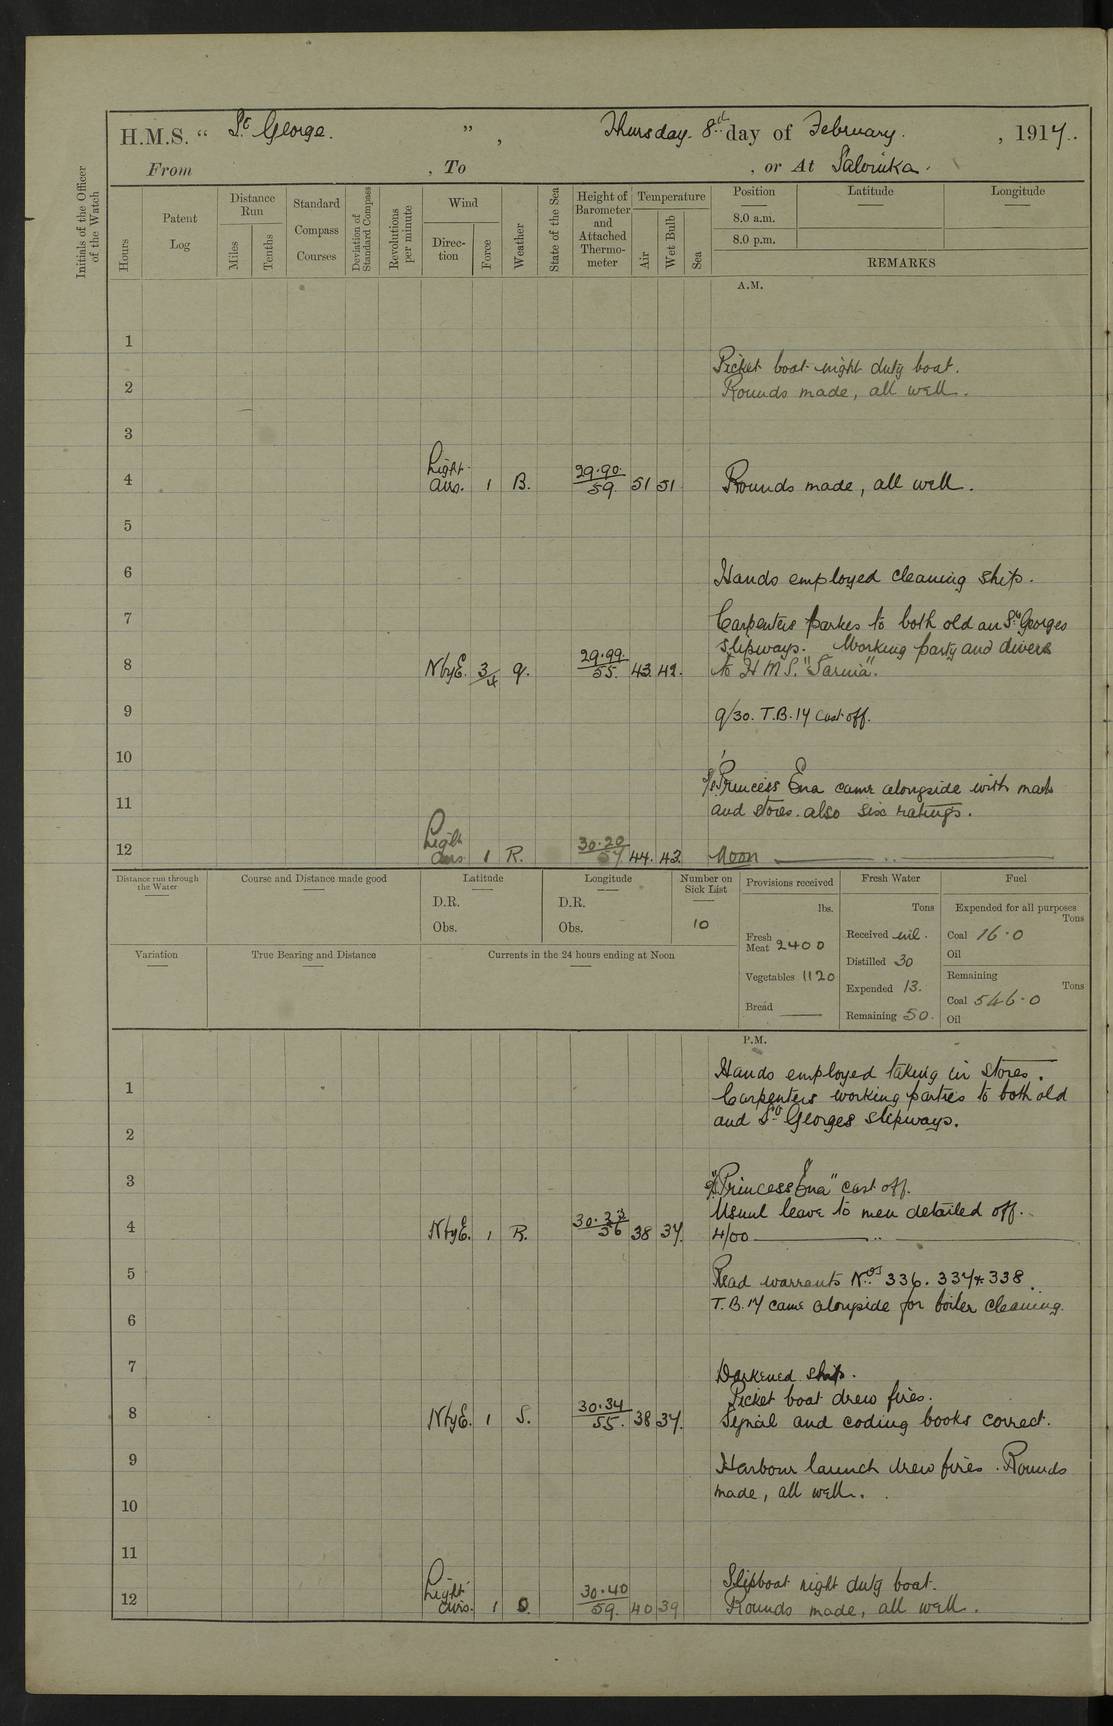 H.M.S. “ St George. ” , Thursday. 8th day of February. , 1917.
From , To , or At Salonika.
Initials of the Officer of the Watch
Hours
Patent Log
Distance Run
Miles
Tenths
Standard Compass Courses
Deviation of Standard Compass
Revolutions per minute
Wind
Direction
Force
Weather
State of the Sea
Height of Barometer and Attached Thermometer
Temperature
Air
Wet Bulb
Sea
Position Latitude Longitude
8.0 a.m.
8.0 p.m.
REMARKS
A.M.
1
Picket boat night duty boat.
2 Rounds made, all well.
3
4 Light airs. 1 B. 29.90. 59. 51 51 Rounds made, all well.
5
6 Hands employed cleaning ship.
7 Carpenters parties to both old an St Georges
slipways. Working party and divers
8 NbyE. 3/4 q. 29.99. 55. 43. 42. to H M S. "Sarnia".
9 9/30. T.B. 17 cast off.
10
Princess Ena came alongside with mails
11 and stores. also six ratings.
12 Light airs 1 R. 30.20 57 44. 43. Noon
Distance run through the Water
Course and Distance made good
Latitude
D.R.
Obs.
Longitude
D.R.
Obs.
Number on Sick List
10
Provisions received
lbs.
Fresh Meat 2400
Vegetables 1120
Bread
Fresh Water
Tons
Received nil.
Distilled 30
Expended 13.
Remaining 50.
Fuel
Expended for all purposes
Tons
Coal 16.0
Oil
Remaining
Tons
Coal 546.0
Oil
Variation
True Bearing and Distance
Currents in the 24 hours ending at Noon
P.M.
Hands employed taking in stores.
1 Carpenters working parties to both old
and St Georges slipways.
2
3 "Princess Ena" cast off.
Usual leave to men detailed off.
4 NbyE. 1 R. 30.33 56 38 37. 4/00
5 Read warrants Nos 336. 337 & 338.
T.B. 17 came alongside for boiler cleaning.
6
7 Darkened ship.
Picket boat drew fires.
8 NbyE. 1 S. 30.34 55. 38 37. Signal and coding books correct.
9 Harbour launch drew fires. Rounds
made, all well.
10
11
Slipboat night duty boat.
12 Light airs. 1 O. 30.40 59. 40 39 Rounds made, all well.